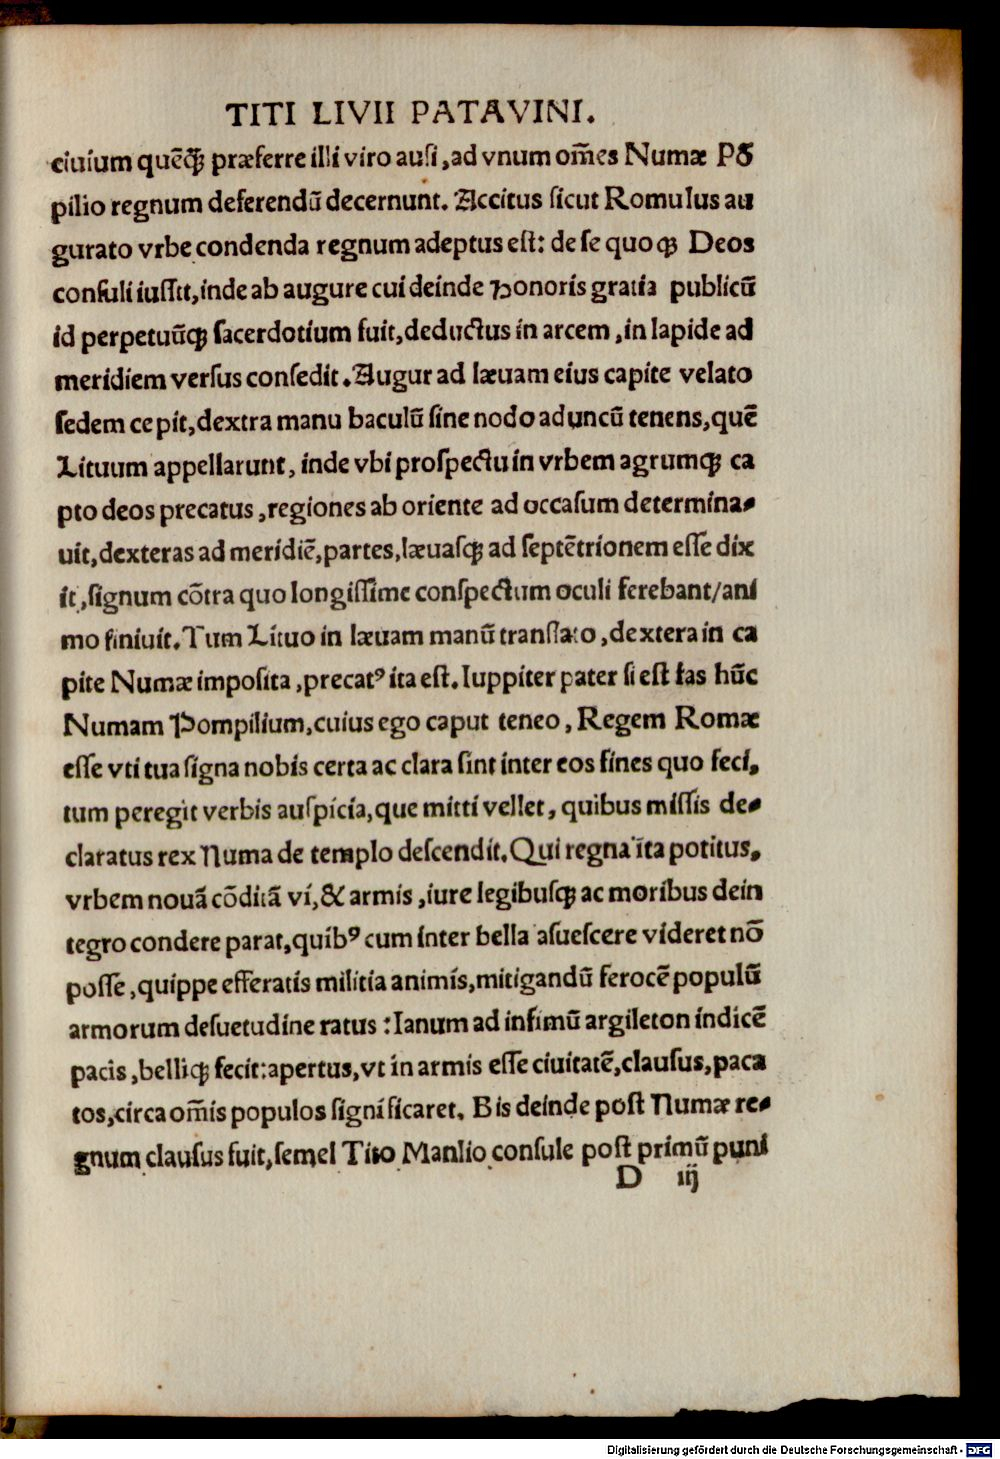 TITI LIVII PATAVINI.
ciuium quēq̃ꝫ præferre illi viro ausi, ad vnum om̃es Numæ Põ
pilio regnum deferendū decernunt. Accitus sicut Romulus au
gurato vrbe condenda regnum adeptus est: de se quoqꝫ Deos
consuli iussit, inde ab augure cui deinde honoris gratia publicū
id perpetuūqꝫ sacerdotium fuit, deductus in arcem, in lapide ad
meridiem versus consedit. Augur ad læuam eius capite velato
sedem cepit, dextra manu baculū sine nodo aduncū tenens, quē
Lituum appellarunt, inde vbi prospectu in vrbem agrumqꝫ ca
pto deos precatus, regiones ab oriente ad occasum determina-
uit, dexteras ad meridiē, partes, læuasqꝫ ad septētrionem esse dix
it, signum cōtra quo longissime conspectum oculi ferebant/ ani
mo finiuit. Tum Lituo in læuam manū translato, dextera in ca
pite Numæ imposita, precatꝰ ita est. Iuppiter pater si est fas hūc
Numam Pompilium, cuius ego caput teneo, Regem Romæ
esse vti tua signa nobis certa ac clara sint inter eos fines quo feci,
tum peregit verbis auspicia, que mitti vellet, quibus missis de-
claratus rex Numa de templo descendit. Qui regna ita potitus,
vrbem nouā cōditā vi, & armis, iure legibusqꝫ ac moribus dein
tegro condere parat, quibꝰ cum inter bella asuescere videret nō
posse, quippe efferatis militia animis, mitigandū ferocē populū
armorum desuetudine ratus: Ianum ad infimū argileton indicē
pacis, belliqꝫ fecit: apertus, vt in armis esse ciuitatē, clausus, paca
tos, circa om̃is populos significaret. Bis deinde post Numæ re-
gnum clausus fuit, semel Tito Manlio consule post primū puni
D iij
Digitalisierung gefördert durch die Deutsche Forschungsgemeinschaft - DFG